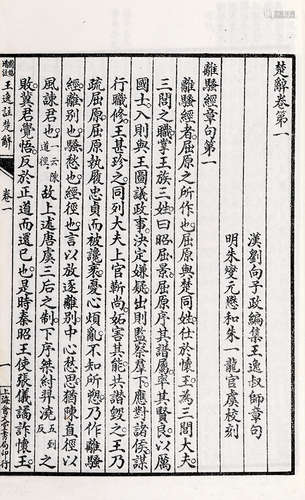 楚辭卷第一
漢劉向子政編集王逸叔師章句
明朱燮元懋和朱一龍官虞校刻
離騷經章句第一
離騷經者屈原之所作也屈原與楚同姓仕於懷王為三閭大夫
三閭之職掌王族三姓曰昭屈景屈原序其譜屬率其賢良以厲
國士入則與王圖議政事決定嫌疑出則監察羣下應對諸侯謀
行職修王甚珍之同列大夫上官靳尚妬害其能共譖毀之王乃
疏屈原屈原執履忠貞而被讒衺憂心煩亂不知所愬乃作離騷
經離別也騷愁也經徑也言以放逐離別中心愁思猶陳直徑以
風諫君也一云陳道徑故上述唐虞三后之制下序桀紂羿澆五到之
敗冀君覺悟反於正道而還己也是時秦昭王使張儀譎詐懷王
王逸註楚辭
卷一
一
上海會文堂書局印行